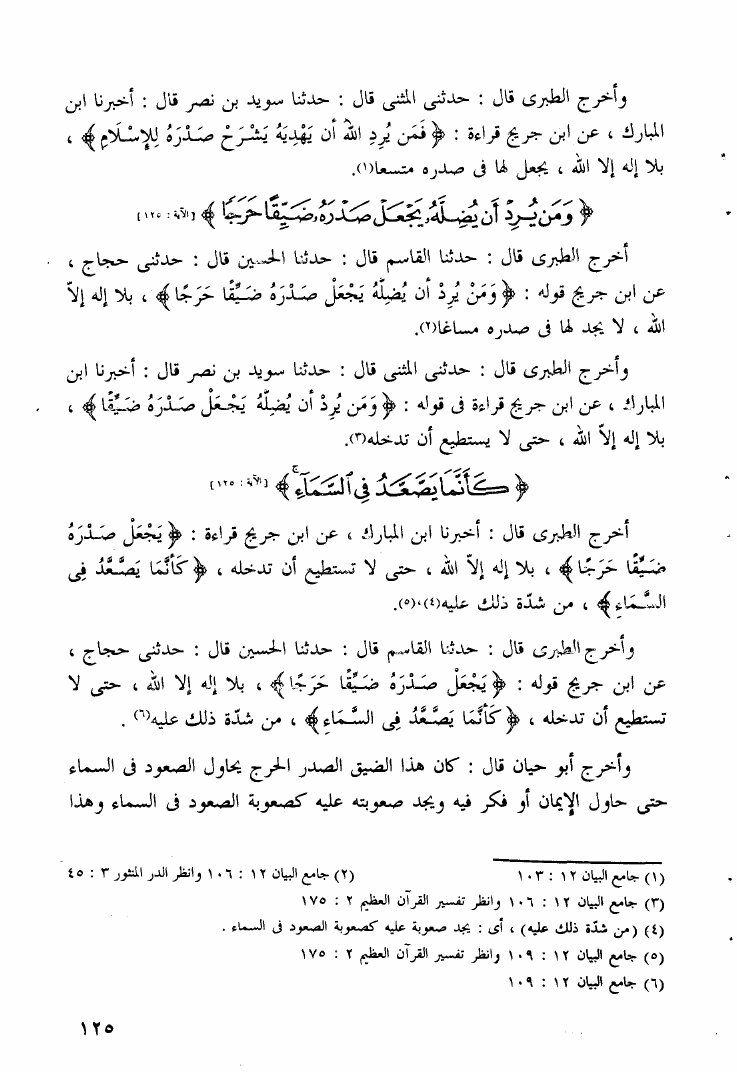 وأخرج الطبرى قال : حدثنى المثنى قال : حدثنا سويد بن نصر قال : أخبرنا ابن
المبارك ، عن ابن جريج قراءة : ﴿ فَمَن يُرِدِ اللهُ أن يَهْدِيَهُ يَشْرَحْ صَدْرَهُ لِلإِسْلَامِ ﴾ ،
بلا إله إلا الله ، يجعل لها فى صدره متسعا(١).
﴿ وَمَن يُرِدْ أَن يُضِلَّهُۥ يَجْعَلْ صَدْرَهُۥ ضَيِّقًا حَرَجًا ﴾ [الآية : ١٢٥]
أخرج الطبرى قال : حدثنا القاسم قال : حدثنا الحسين قال : حدثنى حجاج ،
عن ابن جريج قوله : ﴿ وَمَنْ يُرِدْ أن يُضِلَّهُ يَجْعَلْ صَدْرَهُ ضَيِّقًا حَرَجًا ﴾ ، بلا إله إلاّ
الله ، لا يجد لها فى صدره مساغا(٢).
وأخرج الطبرى قال : حدثنى المثنى قال : حدثنا سويد بن نصر قال : أخبرنا ابن
المبارك ، عن ابن جريج قراءة فى قوله : ﴿ وَمَن يُرِدْ أن يُضِلَّهُ يَجْعَلْ صَدْرَهُ ضَيِّقًا ﴾ ،
بلا إله إلاّ الله ، حتى لا يستطيع أن تدخله(٣).
﴿ كَأَنَّمَا يَصَّعَّدُ فِى ٱلسَّمَآءِ ۚ ﴾ [الآية : ١٢٥]
أخرج الطبرى قال : أخبرنا ابن المبارك ، عن ابن جريج قراءة : ﴿ يَجْعَلْ صَدْرَهُ
ضَيِّقًا حَرَجًا ﴾ ، بلا إله إلاّ الله ، حتى لا تستطيع أن تدخله ، ﴿ كَأَنَّمَا يَصَّعَّدُ فِى
السَّمَاءِ ﴾ ، من شدّة ذلك عليه(٤)،(٥).
وأخرج الطبرى قال : حدثنا القاسم قال : حدثنا الحسين قال : حدثنى حجاج ،
عن ابن جريج قوله : ﴿ يَجْعَلْ صَدْرَهُ ضَيِّقًا حَرَجًا ﴾ ، بلا إله إلا الله ، حتى لا
تستطيع أن تدخله ، ﴿ كَأَنَّمَا يَصَّعَّدُ فِى السَّمَاءِ ﴾ ، من شدّة ذلك عليه(٦) .
وأخرج أبو حيان قال : كان هذا الضيق الصدر الحرج يحاول الصعود فى السماء
حتى حاول الإيمان أو فكر فيه ويجد صعوبته عليه كصعوبة الصعود فى السماء وهذا
(١) جامع البيان ١٢ : ١٠٣ (٢) جامع البيان ١٢ : ١٠٦ وانظر الدر المنثور ٣ : ٤٥
(٣) جامع البيان ١٢ : ١٠٦ وانظر تفسير القرآن العظيم ٢ : ١٧٥
(٤) (من شدّة ذلك عليه) ، أى : يجد صعوبة عليه كصعوبة الصعود فى السماء .
(٥) جامع البيان ١٢ : ١٠٩ وانظر تفسير القرآن العظيم ٢ : ١٧٥
(٦) جامع البيان ١٢ : ١٠٩
١٢٥